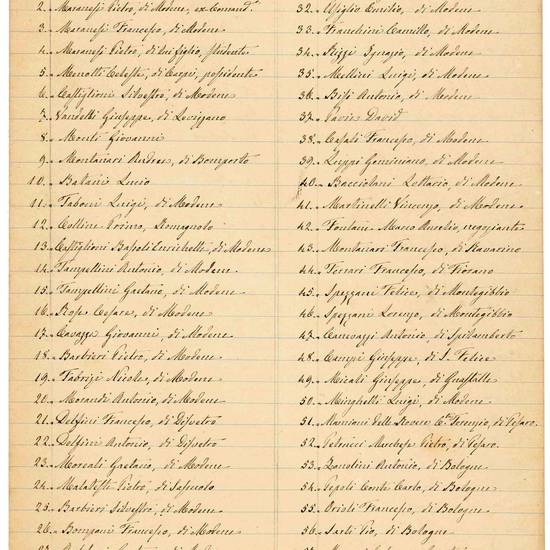 2. Maranesi Pietro, di Modena, ex Comand.
3. Maranesi Francesco, di Modena
4. Maranesi Pietro, di lui figlio, studente
5. Menotti Celeste, di Carpi, possidente
6. Castiglioni Silvestro, di Modena
7. Vandelli Giuseppe, di Levizzano
8. Monti Giovanni
9. Montanari Andrea, di Bomporto
10. Lucio
11. Taboni Luigi, di Modena
12. Primo, Romagnolo
13. Castiglioni di Modena
14. Tampellini Antonio, di Modena
15. Tampellini Gaetano, di Modena
16. Rose Cesare, di Modena
17. Cavazzi Giovanni, di Modena
18. Barbieri Pietro, di Modena
19. Fabrizi Nicola, di Modena
20. Morandi Antonio, di Modena
21. Delfini Francesco, di Disvetro
22. Delfini Antonio, di Disvetro
23. Morcali Gaetano, di Modena
24. Malatesta Pietro, di Sassuolo
25. Barbieri Silvestro, di Modena
26. Bompani Francesco, di Modena
32. Usiglio Emilio, di Modena
33. Franchini Camillo, di Modena
34. Rizzi Ignazio, di Modena
35. Luigi, di Modena
36. Bisi Antonio, di Modena
37. David
38. Casali Francesco, di Modena
39. Luppi Geminiano, di Modena
40. Bacciolani Lottario, di Modena
41. Martinelli Vincenzo, di Modena
42. Fontana Marco Aurelio, negoziante
43. Montanari Francesco, di Ravarino
44. Ferrari Francesco, di Fiorano
45. Spezzani Felice, di Montegibbio
46. Spezzani Lorenzo, di Montegibbio
47. Canevazzi Antonio, di Spilamberto
48. Campi Giuseppe, di S. Felice
49. Micali Giuseppe, di Guastalla
50. Minghelli Luigi, di Modena
51. Mamiani della Rovere C.e Terenzio, di Pesaro
52. Petrucci Marchese Pietro, di Pesaro
53. Zanolini Antonio, di Bologna
54. Pepoli Conte Carlo, di Bologna
55. Orioli Francesco, di Bologna
56. Sarti Pio, di Bologna